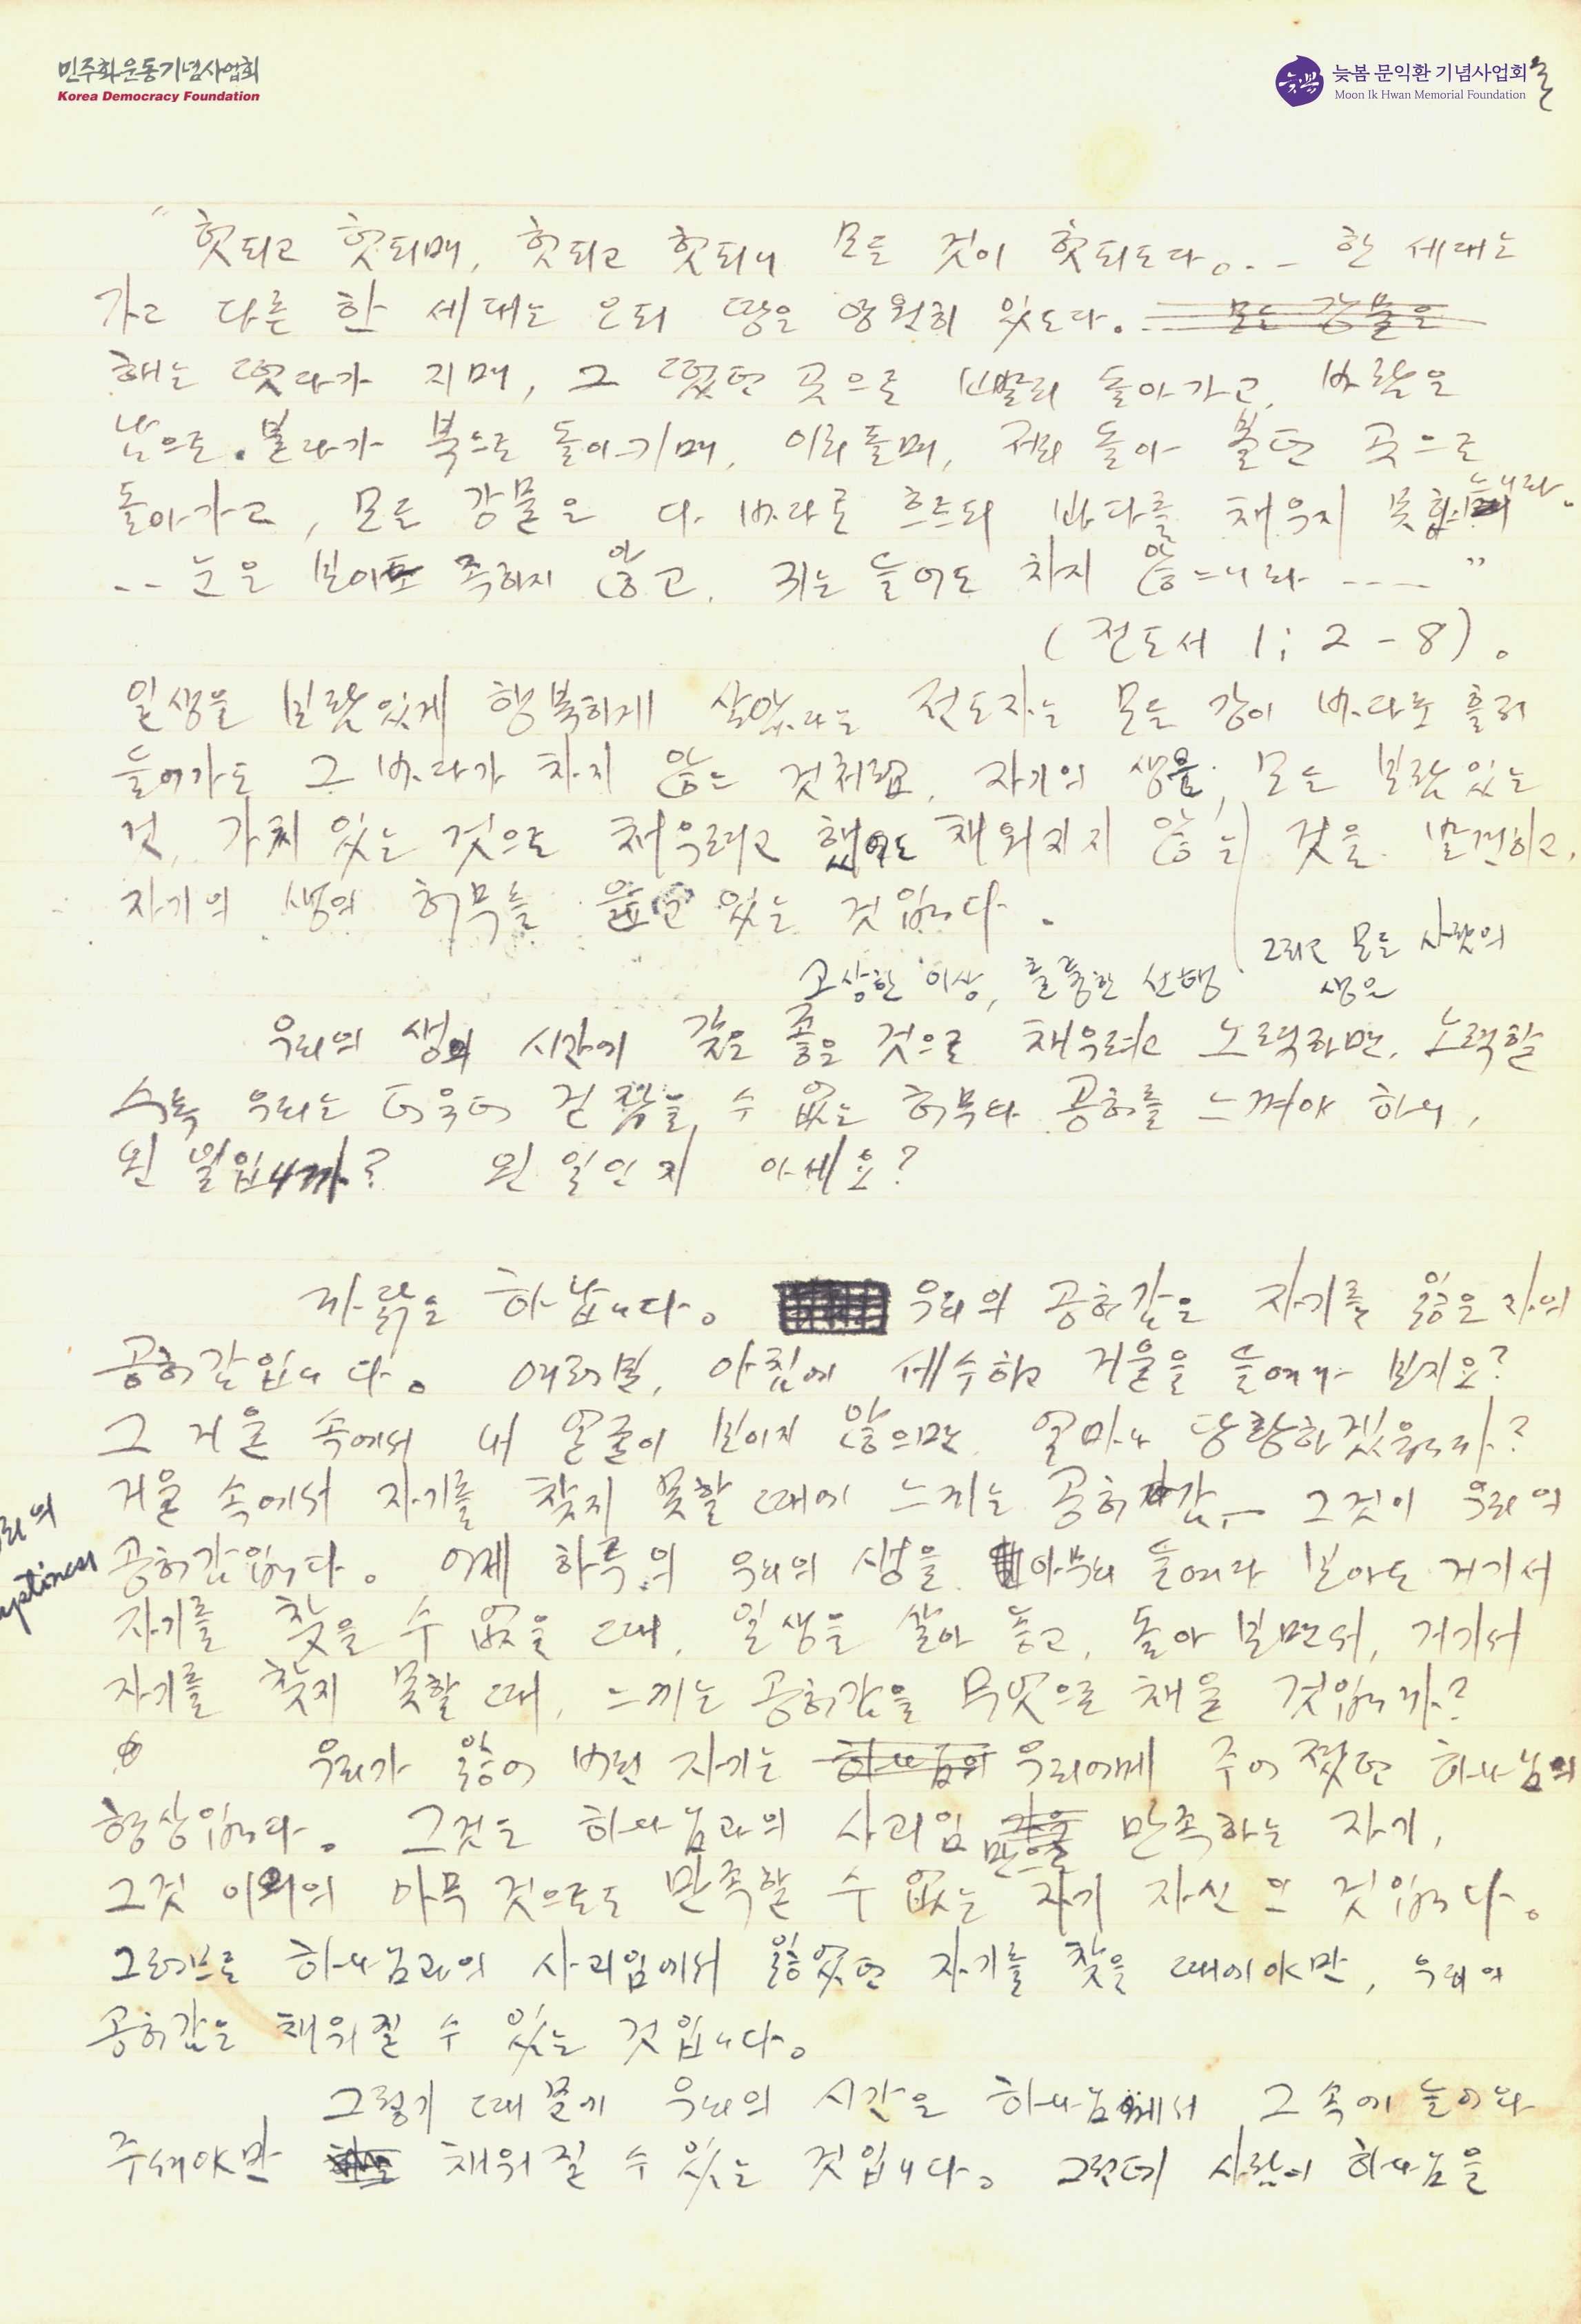 민주화운동기념사업회
Korea Democracy Foundation
늦봄
늦봄 문익환 기념사업회
Moon Ik Hwan Memorial Foundation
"헛되고 헛되며, 헛되고 헛되니 모든 것이 헛되도다... 한 세대는
가고 다른 한 세대는 오되 땅은 영원히 있도다. ... 모든 강물은
해는 떴다가 지며, 그 떴던 곳으로 빨리 돌아가고, 바람은
남으로 불다가 북으로 돌이키며, 이리 돌며, 저리 돌아 불던 곳으로
돌아가고, 모든 강물은 다 바다로 흐르되 바다를 채우지 못하느니라.
... 눈은 보아도 족하지 않고, 귀는 들어도 차지 않느니라 ...."
(전도서 1; 2-8).
일생을 보람있게 행복하게 살았다는 전도자는 모든 강이 바다로 흘러
들어가도 그 바다가 차지 않는 것처럼, 자기의 생을, 모든 보람있는
것, 가치 있는 것으로 채우려고 했어도 채워지지 않는 것을 발견하고,
자기의 생의 허무를 읊고 있는 것입니다.
그리고 모든 사람의
고상한 이상, 훌륭한 선행 생은
우리의 생의 시간에 갖은 좋은 것으로 채우려고 노력하면, 노력할
수록 우리는 더욱더 걷잡을 수 없는 허무와 공허를 느껴야 하니,
왼 일입니까? 왼 일인지 아세요?
까닭은 하납니다. 우리의 공허감은 자기를 잃은 자의
공허감입니다. 여러분, 아침에 세수하고 거울을 들여다 보지요?
그 거울 속에서 내 얼굴이 보이지 않으면 얼마나 당황하겠읍니까?
거울 속에서 자기를 찾지 못할 때에 느끼는 공허감, — 그것이 우리의
공허감입니다. 어제 하루의 우리의 생을 아무리 들여다 보아도 거기서
자기를 찾을 수 없을 때, 일생을 살아 놓고, 돌아 보면서, 거기서
자기를 찾지 못할 때, 느끼는 공허감을 무엇으로 채울 것입니까?
우리가 잃어 버린 자기는 하나님의 우리에게 주어졌던 하나님의
형상입니다. 그것은 하나님과의 사귀임 만으로 만족하는 자기,
그것 이외의 아무 것으로도 만족할 수 없는 자기 자신인 것입니다.
그러므로 하나님과의 사귀임에서 잃었던 자기를 찾을 때에야만, 우리의
공허감은 채워질 수 있는 것입니다.
그렇기 때문에 우리의 시간은 하나님께서 그 속에 들어와
주셔야만 채워질 수 있는 것입니다. 그런데 사람이 하나님을